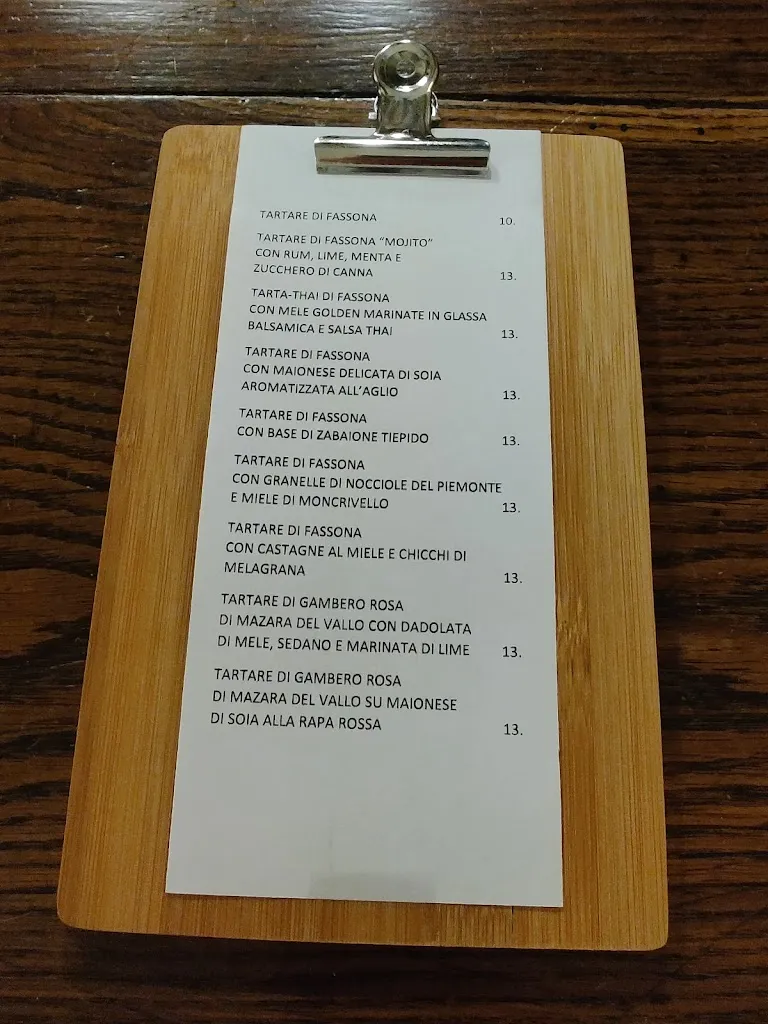 TARTARE DI FASSONA 10.
TARTARE DI FASSONA “MOJITO”
CON RUM, LIME, MENTA E
ZUCCHERO DI CANNA 13.
TARTA-THAI DI FASSONA
CON MELE GOLDEN MARINATE IN GLASSA
BALSAMICA E SALSA THAI 13.
TARTARE DI FASSONA
CON MAIONESE DELICATA DI SOIA
AROMATIZZATA ALL’AGLIO 13.
TARTARE DI FASSONA
CON BASE DI ZABAIONE TIEPIDO 13.
TARTARE DI FASSONA
CON GRANELLE DI NOCCIOLE DEL PIEMONTE
E MIELE DI MONCRIVELLO 13.
TARTARE DI FASSONA
CON CASTAGNE AL MIELE E CHICCHI DI
MELAGRANA 13.
TARTARE DI GAMBERO ROSA
DI MAZARA DEL VALLO CON DADOLATA
DI MELE, SEDANO E MARINATA DI LIME 13.
TARTARE DI GAMBERO ROSA
DI MAZARA DEL VALLO SU MAIONESE
DI SOIA ALLA RAPA ROSSA 13.